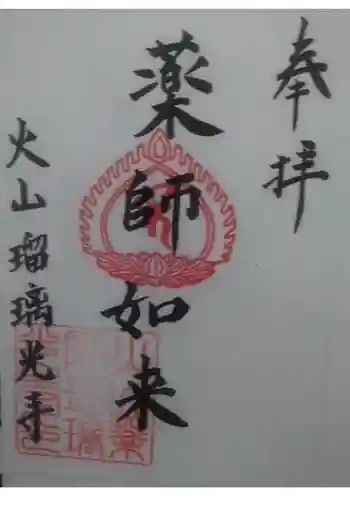 奉拝
薬師如来
火山瑠璃光寺